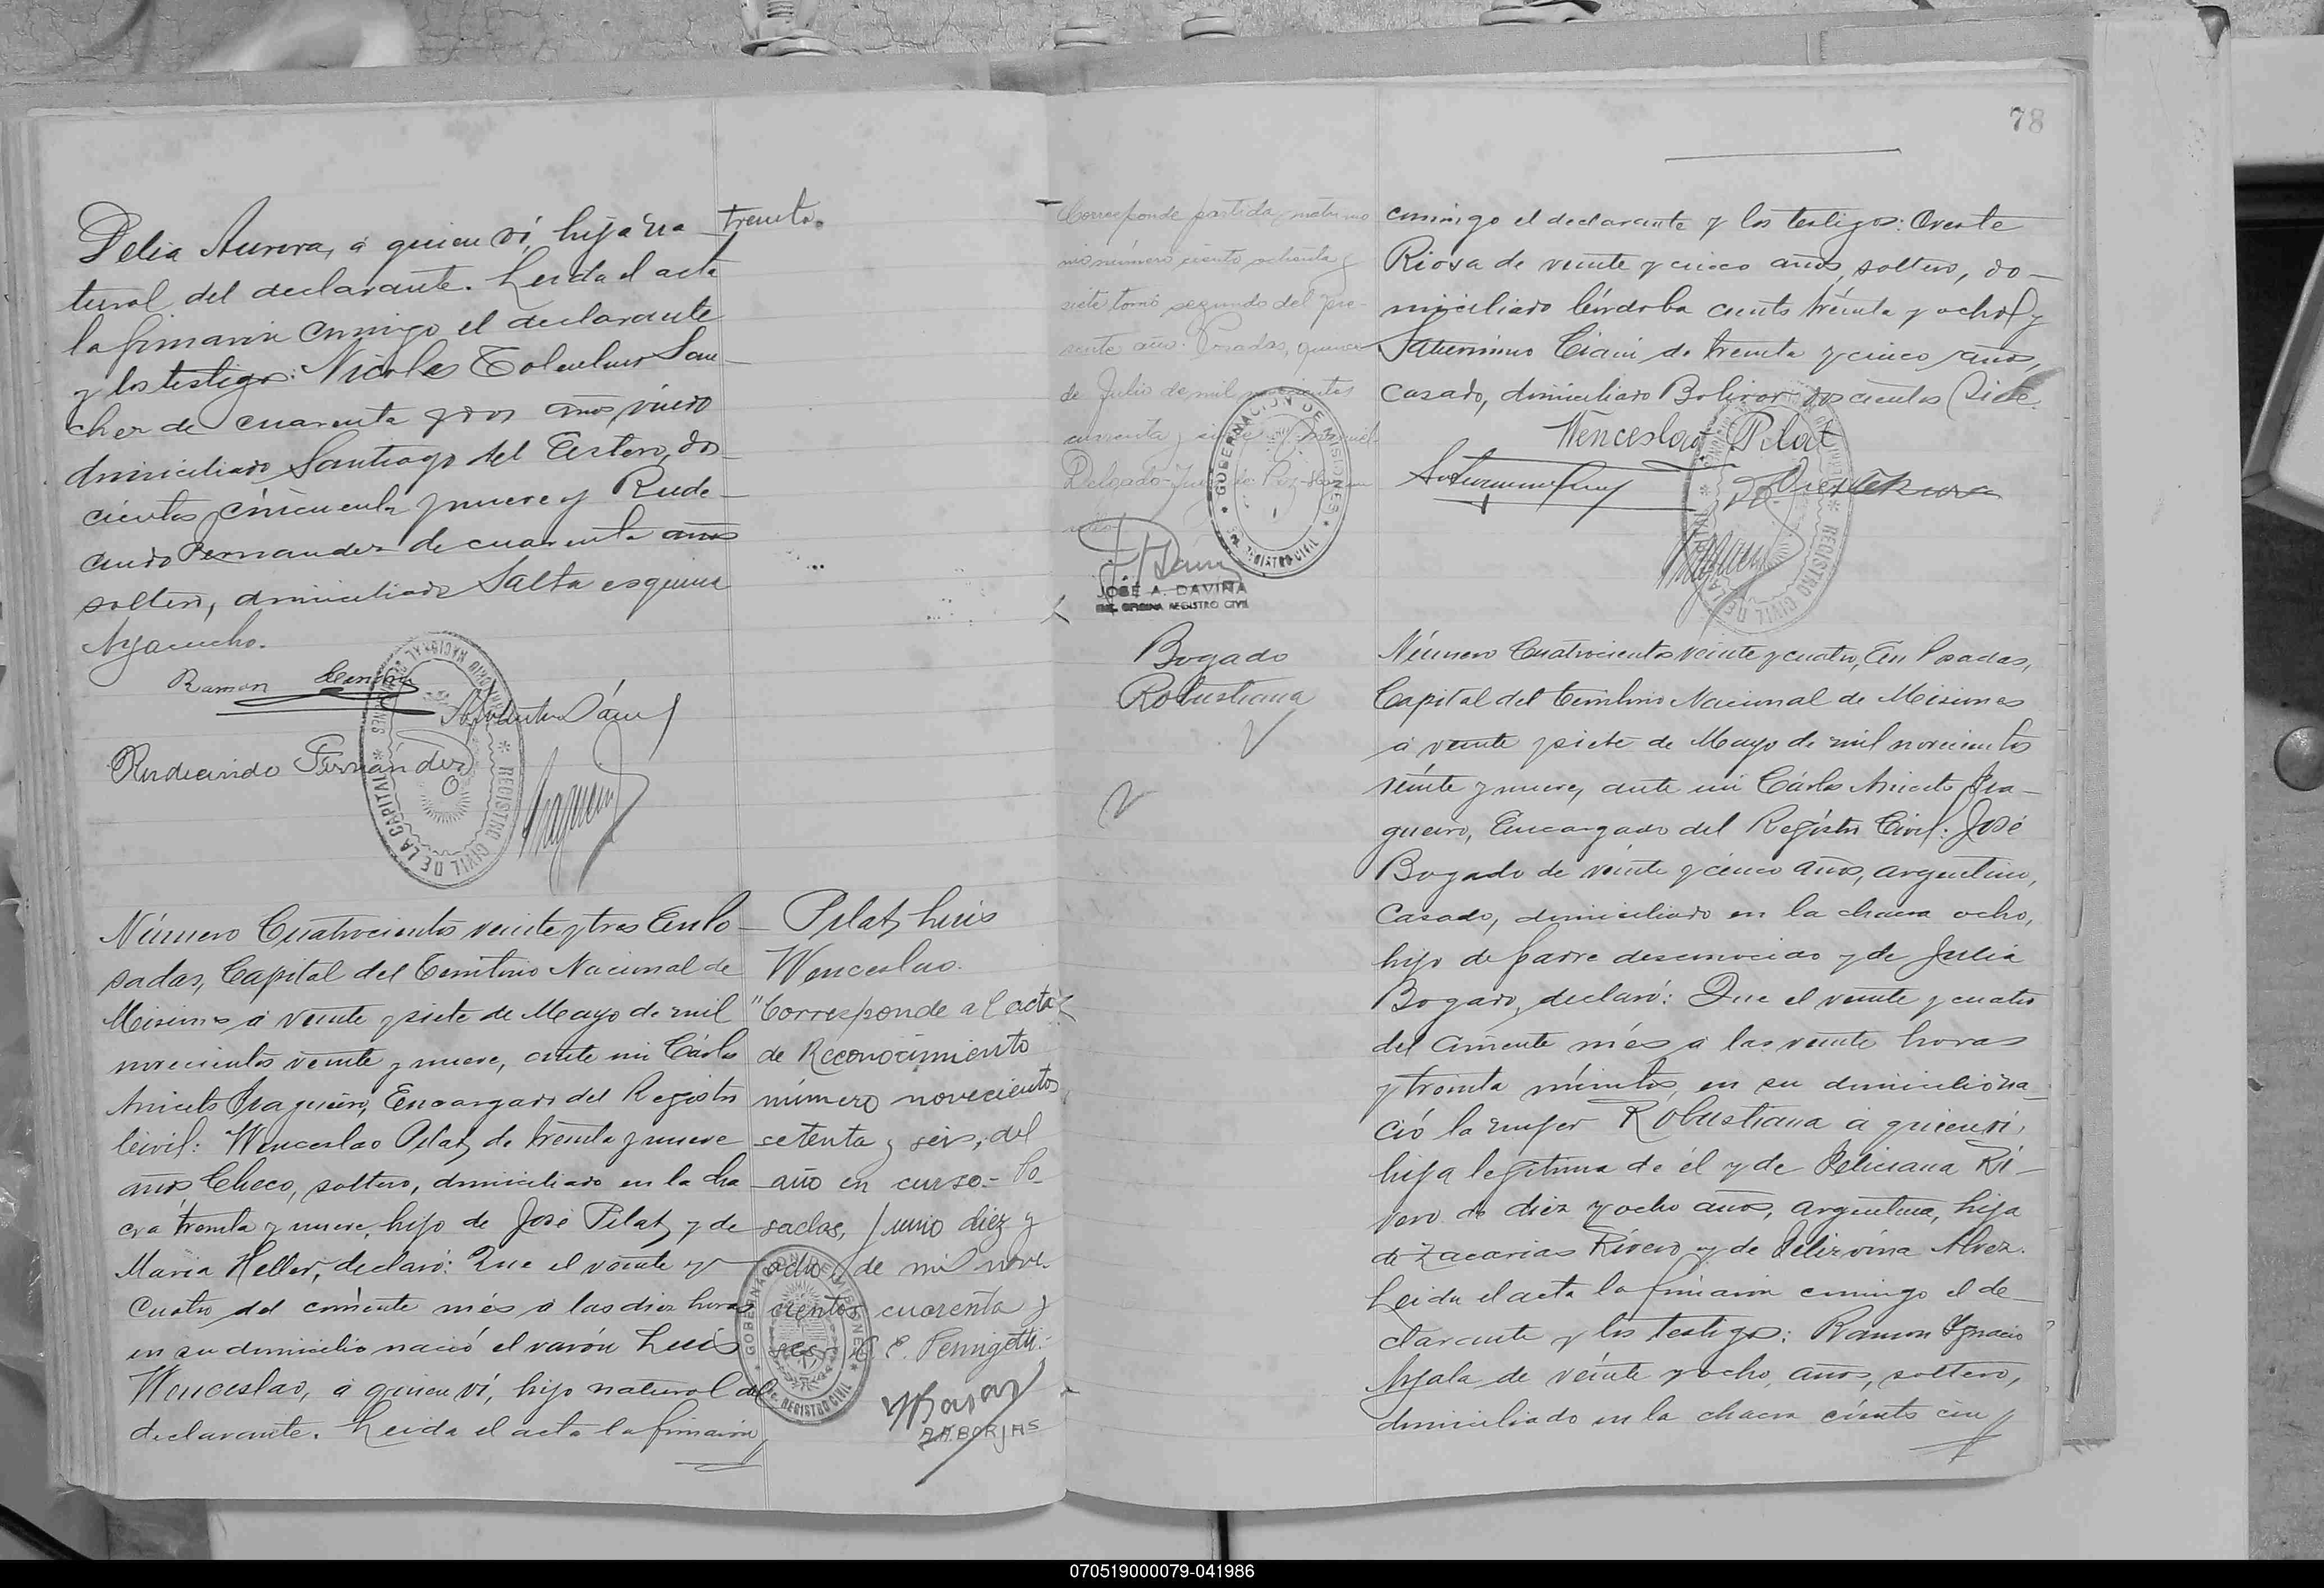 Delia Aurora, á quien ví, hija na-
treinta.
tural del declarante. Leida el acta
la firmaron conmigo el declarante
y los testigos: Nicolas Tolentino San-
chez de cuarenta y dos años, viudo
domiciliado Santiago del Estero, dos
cientos cincuenta y nueve y Rude-
cindo Fernandez de cuarenta años
soltero, domiciliado Salta esquina
Ayacucho.
Ramon
Rudecindo Fernández
REGISTRO CIVIL DE LA CAPITAL
Número Cuatrocientos veinte y tres En Po-
sadas, Capital del Territorio Nacional de
Misiones á veinte y siete de Mayo de mil
novecientos veinte y nueve, ante mi Cárlos
Aniceto Fragueiro, Encargado del Registro
Civil: Wenceslao Pilat, de treinta y nueve
años, Checo, soltero, domiciliado en la cha
cra treinta y nueve, hijo de José Pilat, y de
María Heller, declaró: Que el veinte y
cuatro del corriente més á las diez horas
en su domicilio nació el varón Luis
Wenceslao, á quien ví, hijo natural del
declarante. Leida el acta la firmaron
Pilat, Luis
Wenceslao.
"Corresponde al acta
de Reconocimiento
número novecientos
setenta y seis, del
año en curso.- Po-
sadas, Junio diez y
ocho de mil nove-
cientos cuarenta y
seis
GOBERNACION DE MISIONES
REGISTRO CIVIL
BORJAS
78
Corresponde partida matrimo
nio número ciento ochenta y
siete tomo segundo del pre-
sente año. Posadas, quince
de Julio de mil novecientos
cuarenta y
Delgado - Juez de Paz
GOBERNACION DE MISIONES
REGISTRO CIVIL
JOSÉ A. DAVIÑA
ENC. OFICINA REGISTRO CIVIL
Bogado
Robustiana
conmigo el declarante y los testigos: Oreste
Riosa de veinte y cinco años, soltero, do-
miciliado Córdoba ciento treinta y ocho y
Saturnino Ciani de treinta y cinco años,
casado, domiciliado Bolivar doscientos siete.
Wenceslao Pilat
REGISTRO CIVIL DE LA CAPITAL
Número Cuatrocientos veinte y cuatro, En Posadas,
Capital del Territorio Nacional de Misiones
á veinte y siete de Mayo de mil novecientos
veinte y nueve, ante mi Cárlos Aniceto Fra-
gueiro, Encargado del Registro Civil: José
Bogado de veinte y cinco años, argentino,
casado, domiciliado en la chacra ocho,
hijo de padre desconocido y de Julia
Bogado, declaró: Que el veinte y cuatro
del corriente més á las veinte horas
y treinta minutos, en su domicilio na-
ció la mujer Robustiana á quien ví,
hija legítima de él y de Feliciana Ri-
vero de diez y ocho años, argentina, hija
de Zacarias Rivero y de Alvez.
Leida el acta la firmaron conmigo el de-
clarante y los testigos: Ramon Ygnacio
Ayala de veinte y ocho, años, soltero,
domiciliado en la chacra ciento cin
070519000079-041986